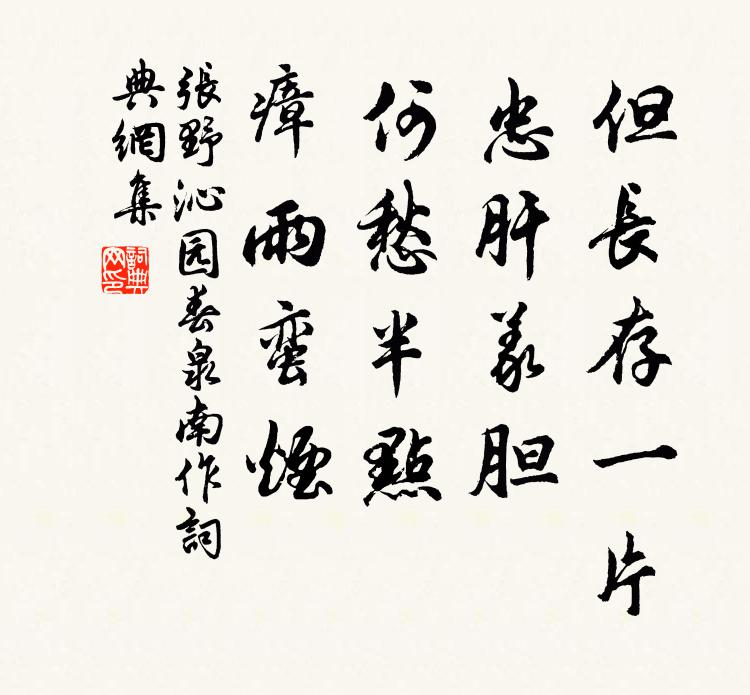 但長存一片
忠肝义胆
何愁半點
瘴雨蛮煙
張野沁园春泉南作詞
典網集
詞典
网印